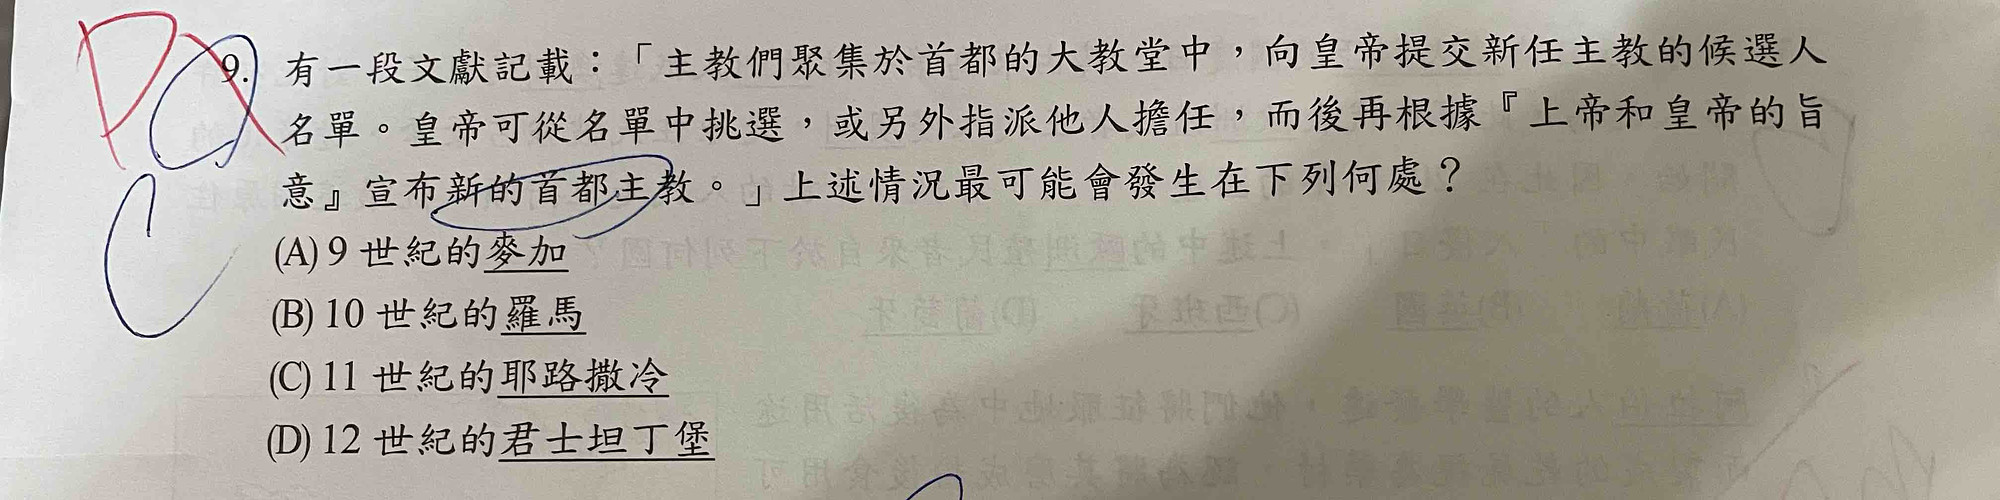 D
C
9. 有一段文獻記載：「主教們聚集於首都的大教堂中，向皇帝提交新任主教的候選人
名單。皇帝可從名單中挑選，或另外指派他人擔任，而後再根據『上帝和皇帝的旨
意』宣布新的首都主教。」上述情況最可能會發生在下列何處？
(A) 9 世紀的麥加
(B) 10 世紀的羅馬
(C) 11 世紀的耶路撒冷
(D) 12 世紀的君士坦丁堡